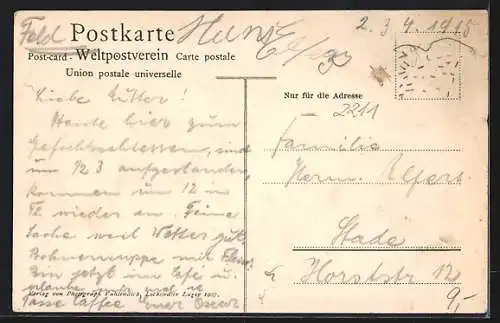 Feld Postkarte 2.3.4.1915
Post-card - Weltpostverein Carte postale
Union postale universelle
Nur für die Adresse
2211
Liebe Mutter!
Heute hier zum
Gefechtsschiessen, sind
um 1/2 3 aufgestanden,
kommen um 12 in
wieder an. Feine
Sache weil Wetter gut,
Bohnensuppe mit
Bin jetzt im Café u.
erlaube mir
Tasse Caffee
Familie
Herm.
Stade
Horststr 12
9,-
Verlag von Photograph Lockstedter Lager